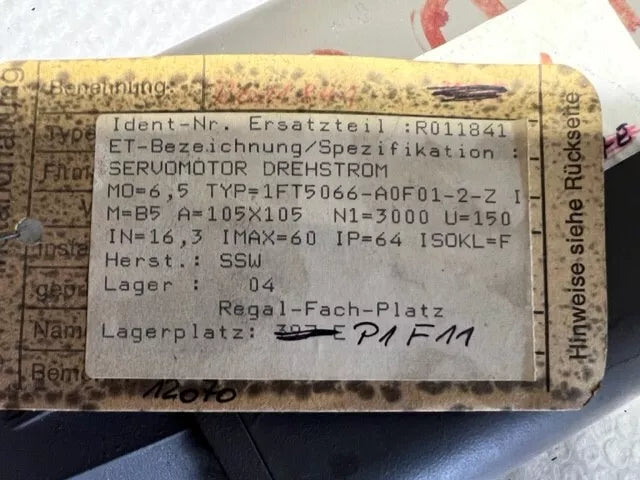 Benennung:
Ident-Nr. Ersatzteil :R011841
ET-Bezeichnung/Spezifikation :
SERVOMOTOR DREHSTROM
MO=6,5 TYP=1FT5066-A0F01-2-Z I
M=B5 A=105X105 N1=3000 U=150
IN=16,3 IMAX=60 IP=64 ISOKL=F
Herst.: SSW
Lager : 04
Regal-Fach-Platz
Lagerplatz: E P1 F11
12070
Type
Firm
Insta
Nam
Beme
Hinweise siehe Rückseite